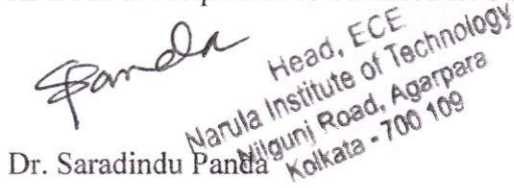 Spanda
Head, ECE
Narula Institute of Technology
Nilgunj Road, Agarpara
Kolkata - 700 109
Dr. Saradindu Panda